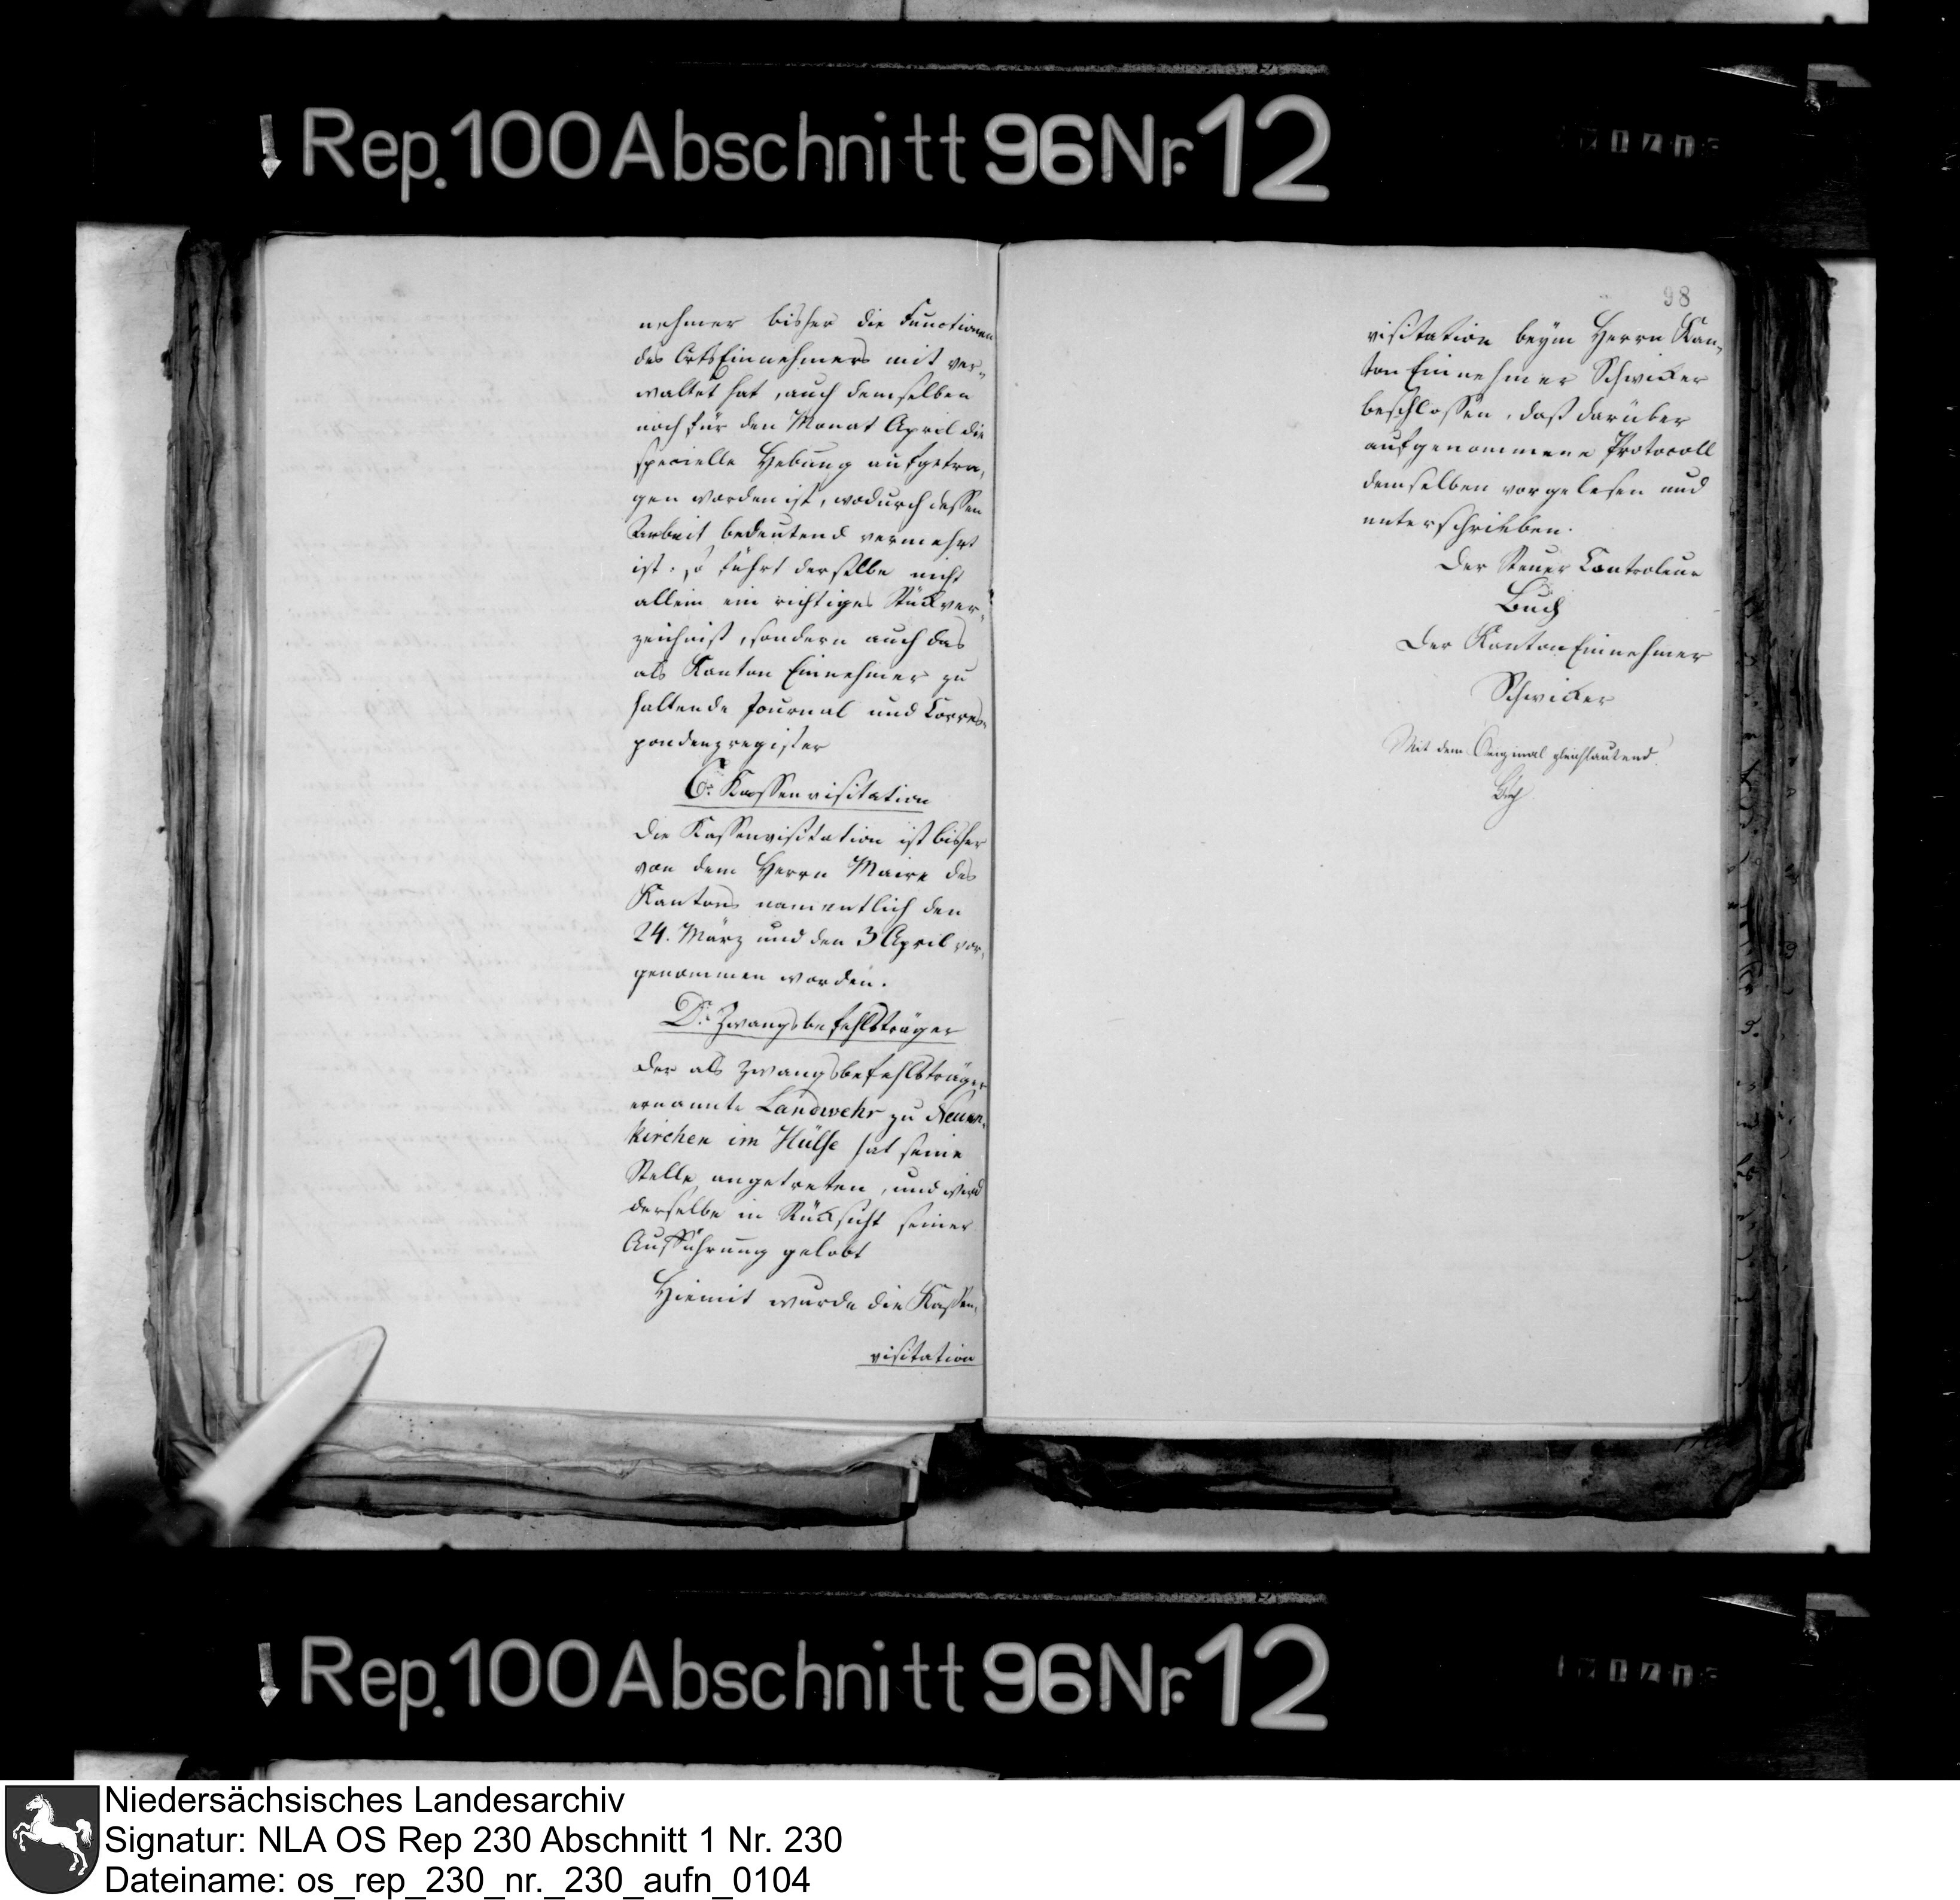 Rep. 100 Abschnitt 96 Nr. 12
nehmer bisher die Functionen
des OrtsEinnehmers mit ver-
waltet hat, auch demselben
noch für den Monat April die
specielle Hebung aufgetra-
gen worden ist, wodurch dessen
Arbeit bedeutend vermehrt
ist. so führt derselbe nicht
allein ein richtiges Stückver-
zeichniß, sondern auch das
als Kanton Einnehmer zu
haltende Journal und Corres-
pondenzregister
C. Kassenvisitation
Die Kassenvisitation ist bisher
von dem Herrn Maire des
Kantons namentlich den
24. März und den 3 April vor-
genommen worden.
D. Zwangsbefehlsträger
Der als Zwangsbefehlsträger
ernannte Landwehr zu Neuen-
kirchen im Hülse hat seine
Stelle angetreten, und wird
derselbe in Rücksicht seiner
Aufführung gelobt
Hiemit wurde die Kassen-
visitation
98
visitation beym Herrn Kan-
ton Einnehmer Schwicker
beschlossen, daß darüber
aufgenommene Protocoll
demselben vorgelesen und
unterschrieben.
Der Steuer Controleur
Buch
Der Kanton Einnehmer
Schwicker
Mit dem Original gleichlautend
Buch
Rep. 100 Abschnitt 96 Nr. 12
Niedersächsisches Landesarchiv
Signatur: NLA OS Rep 230 Abschnitt 1 Nr. 230
Dateiname: os_rep_230_nr._230_aufn_0104